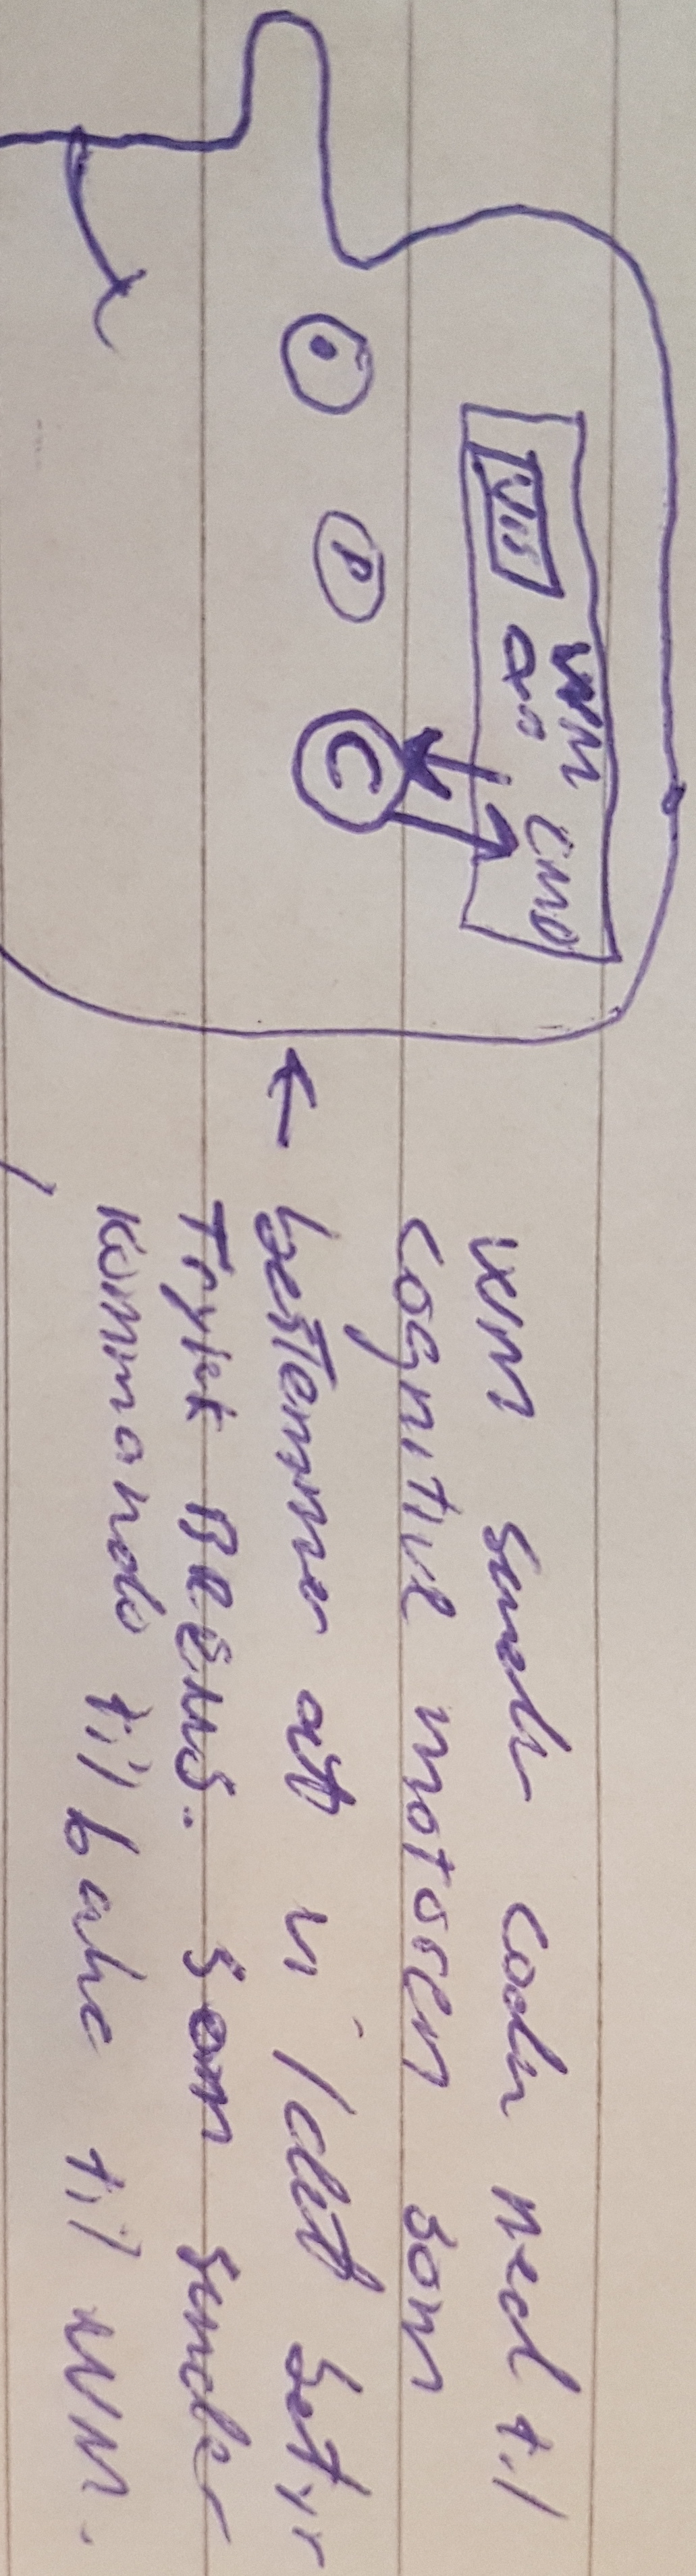 WM CMD
Vis
P C
WM sendr coden ned til
cognitive motoren som
← bestemmer att /det betyr
Trykk BREMS. som sender
kommando tilbake til WM.